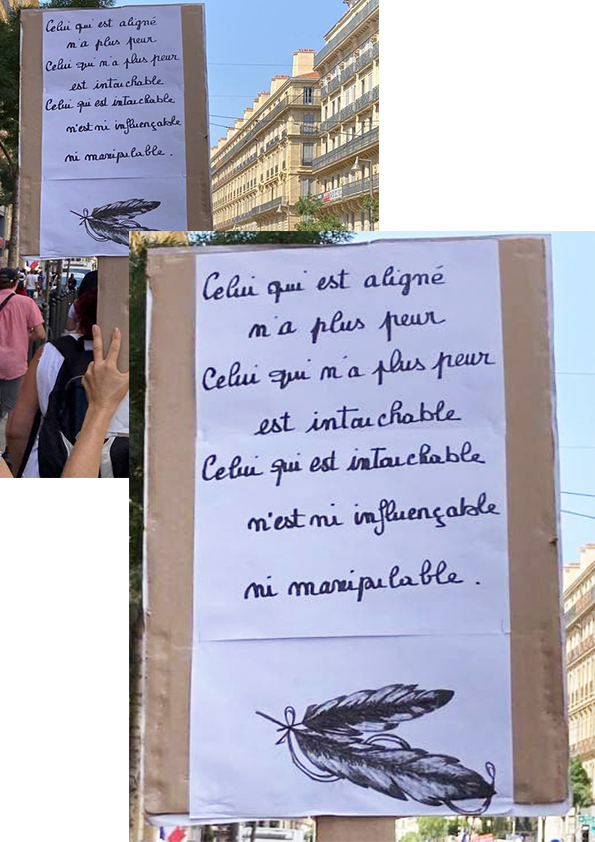 Celui qui est aligné
n'a plus peur
Celui qui n'a plus peur
est intouchable
Celui qui est intouchable
n'est ni influençable
ni manipulable.
Celui qui est aligné
n'a plus peur
Celui qui n'a plus peur
est intouchable
Celui qui est intouchable
n'est ni influençable
ni manipulable.